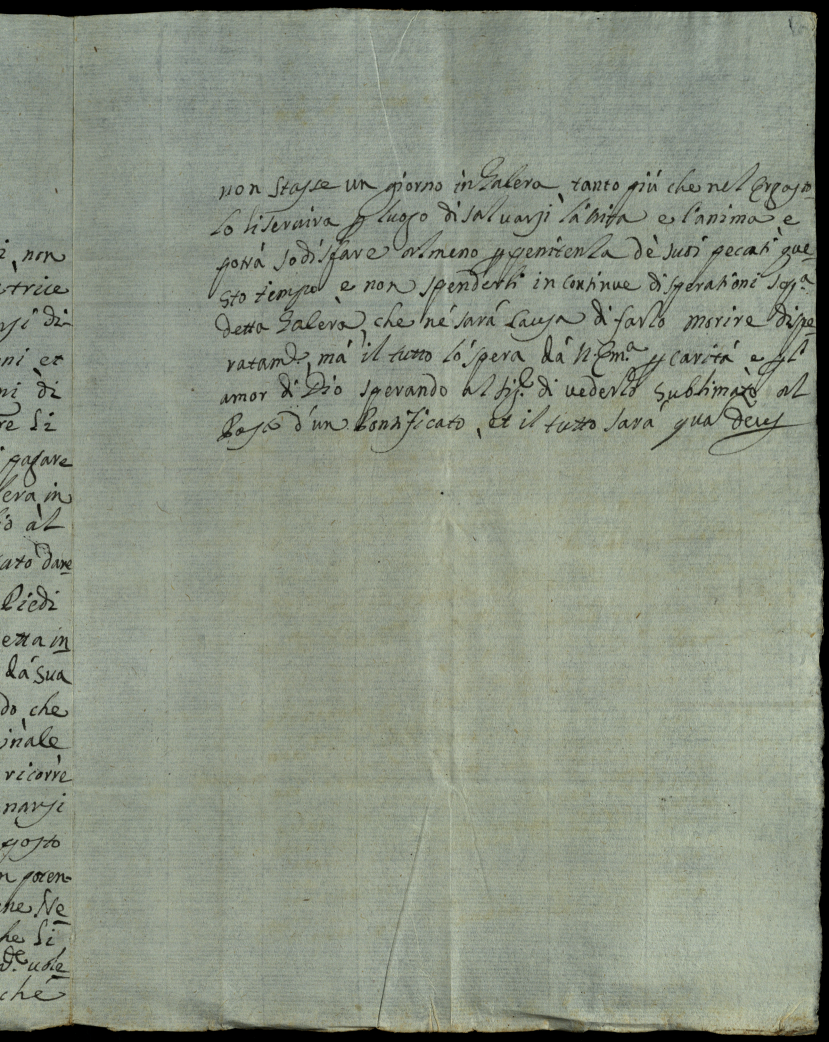 i, non
trice
rsi di-
ni et
ni di
re si
pagare
lera in
io àl
ato dare
Piedi
etta in
dá sua
do che
inàle
ricorre
narsi
gosto
n poten-
ne Ne
he si
uole
ché
non stasse un giorno in Galera, tanto piú che nel Ergasto-
lo li servirà p luogo di salvarsi la vita e l'anima e
potrá sodisfare almeno p penitenza dè suoi peccati que-
sto tempo e non spenderli in continue disperationi sop.ª
detta Galèra, che né sará causa di farlo morire dispe-
ratam.te, má il tutto lo spera dá V. Em.ª p caritá e p l'
amor di Dio sperando al sig.e di vederlo sublimato al
d'un Pontificato, et il tutto sará qua deus